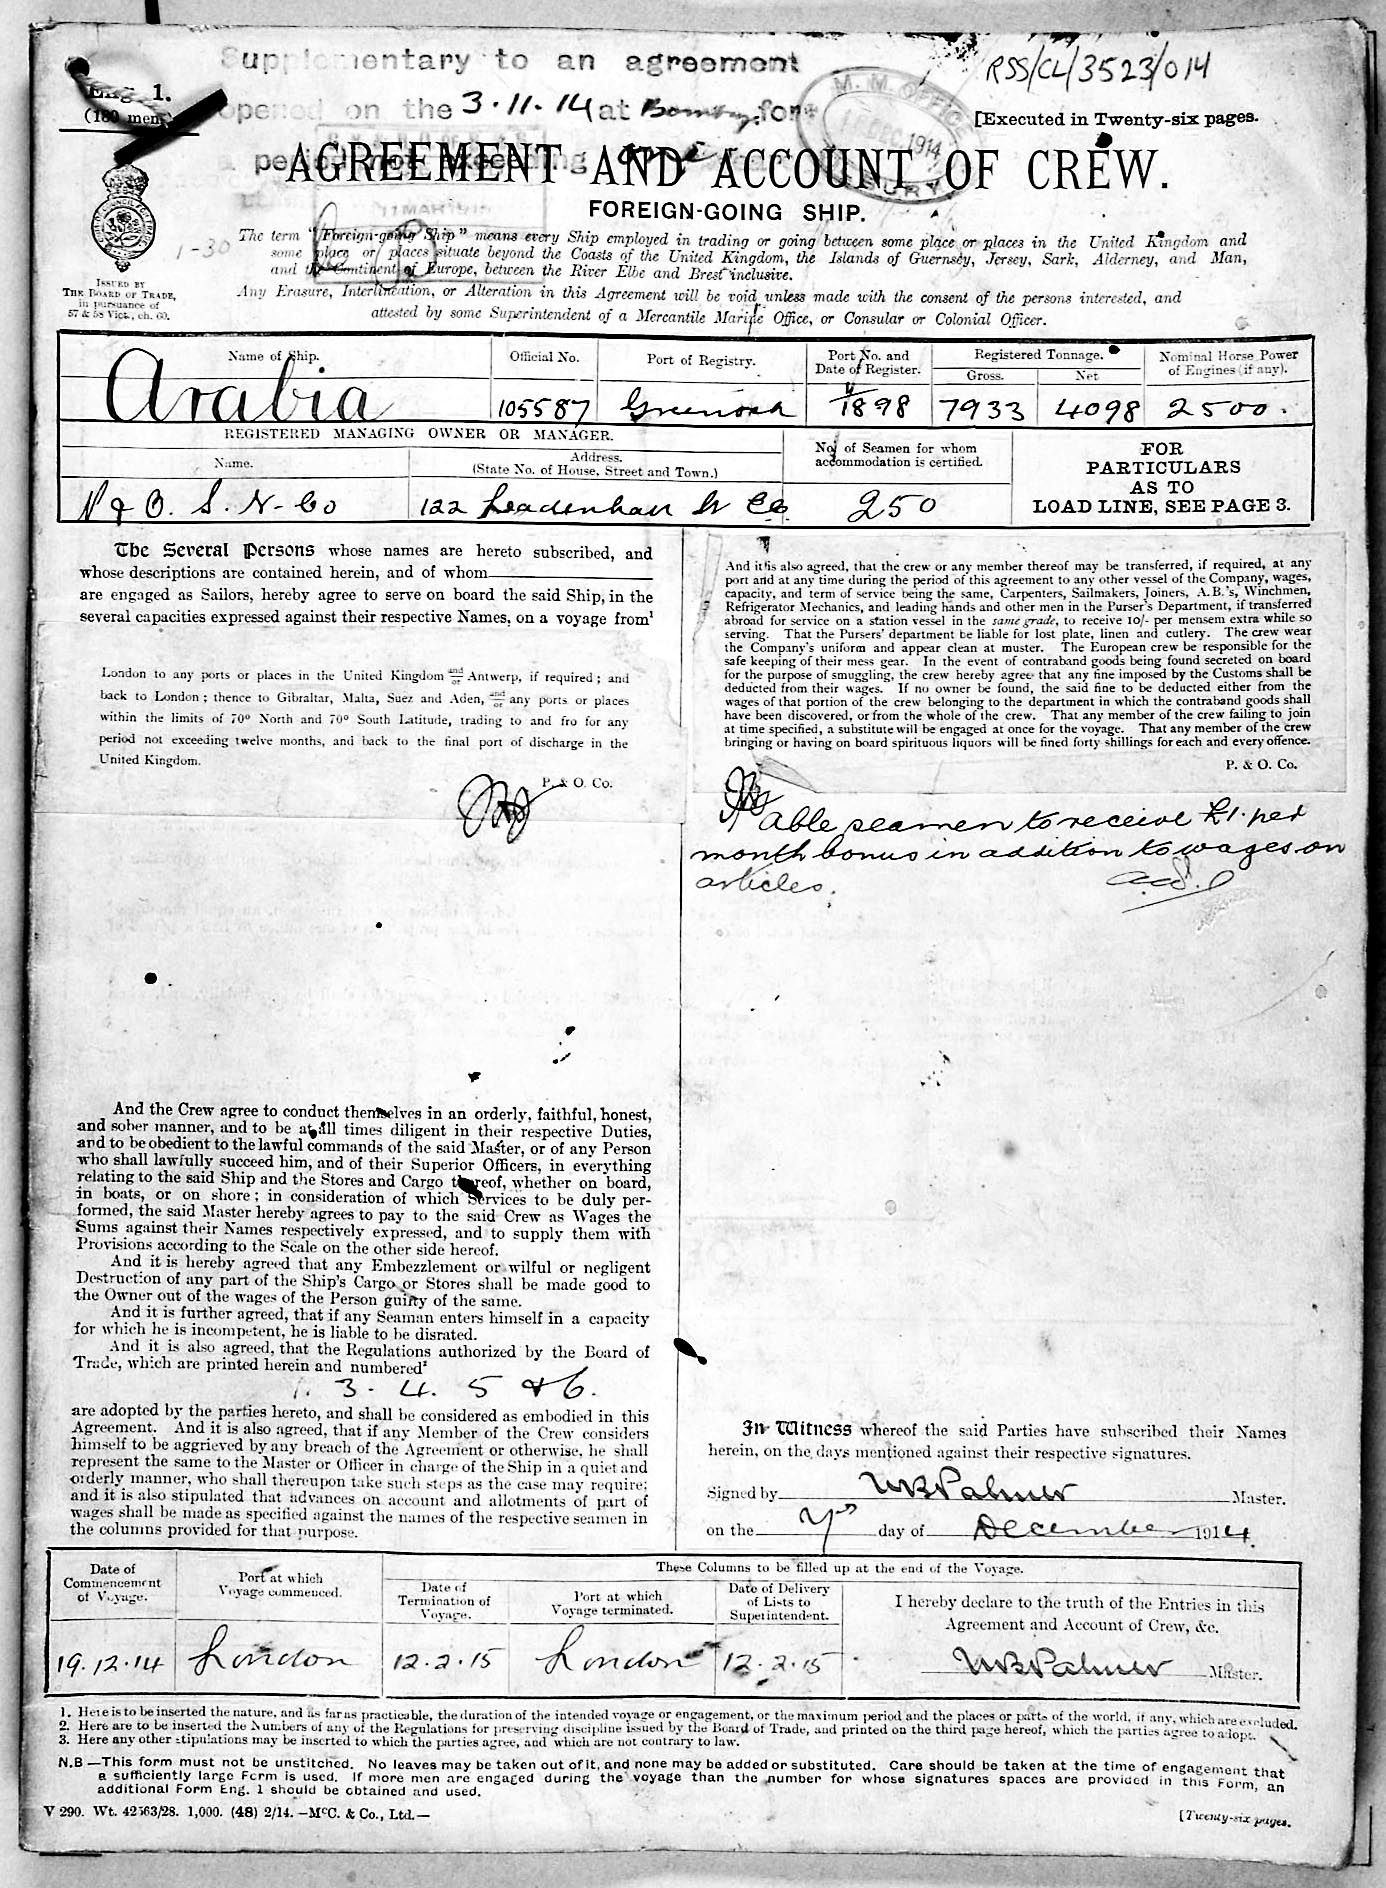 Supplementary to an agreement
opened on the 3.11.14 at Bombay for
a period not exceeding
RSS/CL/3523/014
Eng. 1.
(180 men.)
M. M. OFFICE
DEC 1914
[Executed in Twenty-six pages.
AGREEMENT AND ACCOUNT OF CREW.
FOREIGN-GOING SHIP.
1-30
The term "Foreign-going Ship" means every Ship employed in trading or going between some place or places in the United Kingdom and
some place or places situate beyond the Coasts of the United Kingdom, the Islands of Guernsey, Jersey, Sark, Alderney, and Man,
and the Continent of Europe, between the River Elbe and Brest inclusive.
Any Erasure, Interlineation, or Alteration in this Agreement will be void unless made with the consent of the persons interested, and
attested by some Superintendent of a Mercantile Marine Office, or Consular or Colonial Officer.
ISSUED BY
THE BOARD OF TRADE,
in pursuance of
57 & 58 Vict., ch. 60.
Name of Ship. Official No. Port of Registry. Port No. and Date of Register. Registered Tonnage. Gross. Net. Nominal Horse Power of Engines (if any).
Arabia 105587 Greenock 4/1898 7933 4098 2500.
REGISTERED MANAGING OWNER OR MANAGER.
Name. Address. (State No. of House, Street and Town.) No. of Seamen for whom accommodation is certified.
P & O. S. N. Co 122 Leadenhall St EC. 250
FOR
PARTICULARS
AS TO
LOAD LINE, SEE PAGE 3.
The Several Persons whose names are hereto subscribed, and
whose descriptions are contained herein, and of whom
are engaged as Sailors, hereby agree to serve on board the said Ship, in the
several capacities expressed against their respective Names, on a voyage from¹
London to any ports or places in the United Kingdom and/or Antwerp, if required; and
back to London; thence to Gibraltar, Malta, Suez and Aden, and/or any ports or places
within the limits of 70° North and 70° South Latitude, trading to and fro for any
period not exceeding twelve months, and back to the final port of discharge in the
United Kingdom.
P. & O. Co.
And the Crew agree to conduct themselves in an orderly, faithful, honest,
and sober manner, and to be at all times diligent in their respective Duties,
and to be obedient to the lawful commands of the said Master, or of any Person
who shall lawfully succeed him, and of their Superior Officers, in everything
relating to the said Ship and the Stores and Cargo thereof, whether on board,
in boats, or on shore; in consideration of which Services to be duly per-
formed, the said Master hereby agrees to pay to the said Crew as Wages the
Sums against their Names respectively expressed, and to supply them with
Provisions according to the Scale on the other side hereof.
And it is hereby agreed that any Embezzlement or wilful or negligent
Destruction of any part of the Ship's Cargo or Stores shall be made good to
the Owner out of the wages of the Person guilty of the same.
And it is further agreed, that if any Seaman enters himself in a capacity
for which he is incompetent, he is liable to be disrated.
And it is also agreed, that the Regulations authorized by the Board of
Trade, which are printed herein and numbered²
1. 3. 4. 5 & 6.
are adopted by the parties hereto, and shall be considered as embodied in this
Agreement. And it is also agreed, that if any Member of the Crew considers
himself to be aggrieved by any breach of the Agreement or otherwise, he shall
represent the same to the Master or Officer in charge of the Ship in a quiet and
orderly manner, who shall thereupon take such steps as the case may require;
and it is also stipulated that advances on account and allotments of part of
wages shall be made as specified against the names of the respective seamen in
the columns provided for that purpose.
And it is also agreed, that the crew or any member thereof may be transferred, if required, at any
port and at any time during the period of this agreement to any other vessel of the Company, wages,
capacity, and term of service being the same, Carpenters, Sailmakers, Joiners, A.B.'s, Winchmen,
Refrigerator Mechanics, and leading hands and other men in the Purser's Department, if transferred
abroad for service on a station vessel in the same grade, to receive 10/- per mensem extra while so
serving. That the Pursers' department be liable for lost plate, linen and cutlery. The crew wear
the Company's uniform and appear clean at muster. The European crew be responsible for the
safe keeping of their mess gear. In the event of contraband goods being found secreted on board
for the purpose of smuggling, the crew hereby agree that any fine imposed by the Customs shall be
deducted from their wages. If no owner be found, the said fine to be deducted either from the
wages of that portion of the crew belonging to the department in which the contraband goods shall
have been discovered, or from the whole of the crew. That any member of the crew failing to join
at time specified, a substitute will be engaged at once for the voyage. That any member of the crew
bringing or having on board spirituous liquors will be fined forty shillings for each and every offence.
P. & O. Co.
able seamen to receive £1. per
month bonus in addition to wages on
articles.
In Witness whereof the said Parties have subscribed their Names
herein, on the days mentioned against their respective signatures.
Signed by W B Palmer Master.
on the 7th day of December 1914.
Date of Commencement of Voyage. Port at which Voyage commenced. These Columns to be filled up at the end of the Voyage.
Date of Termination of Voyage. Port at which Voyage terminated. Date of Delivery of Lists to Superintendent.
I hereby declare to the truth of the Entries in this
Agreement and Account of Crew, &c.
19.12.14 London 12.2.15 London 12.2.15 W B Palmer Master.
1. Here is to be inserted the nature, and as far as practicable, the duration of the intended voyage or engagement, or the maximum period and the places or parts of the world, if any, which are excluded.
2. Here are to be inserted the Numbers of any of the Regulations for preserving discipline issued by the Board of Trade, and printed on the third page hereof, which the parties agree to adopt.
3. Here any other stipulations may be inserted to which the parties agree, and which are not contrary to law.
N.B—This form must not be unstitched. No leaves may be taken out of it, and none may be added or substituted. Care should be taken at the time of engagement that
a sufficiently large Form is used. If more men are engaged during the voyage than the number for whose signatures spaces are provided in this Form, an
additional Form Eng. 1 should be obtained and used.
V 290. Wt. 42563/28. 1,000. (48) 2/14.—McC. & Co., Ltd.—
[Twenty-six pages.